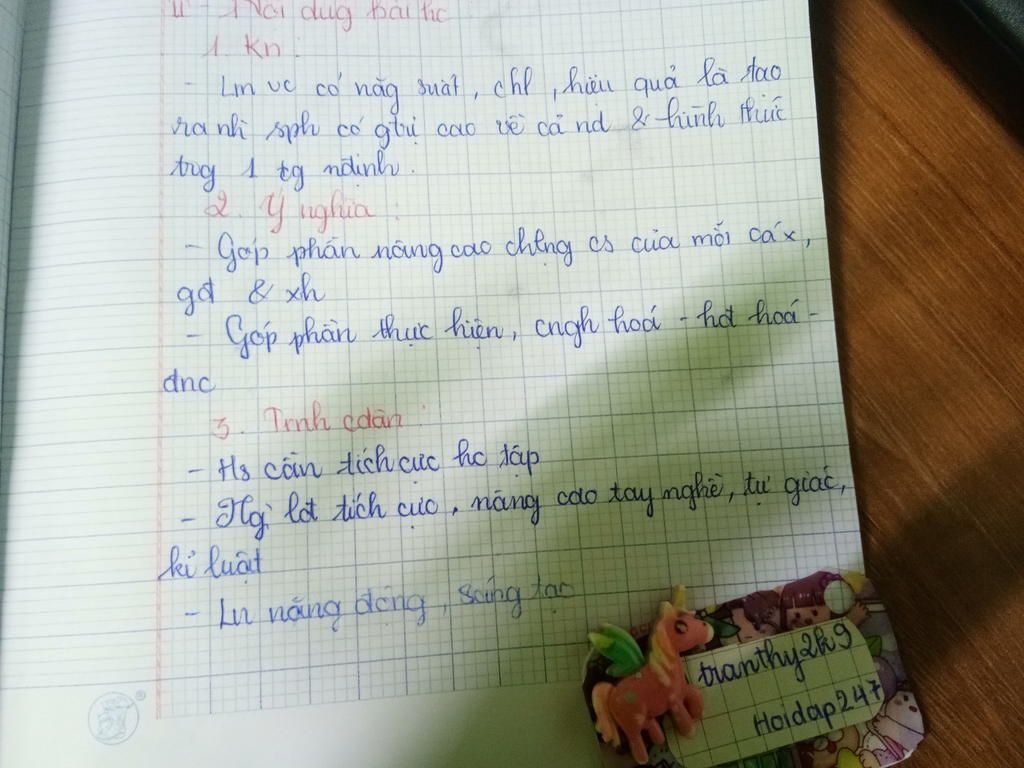 II - Nội dug bài hc
1. Kn :
- Lm vc có năg suất, chl, hiệu quả là tạo
ra nh~ sph có gtrị cao về cả nd & hình thức
trg 1 tg nđịnh.
2. Ý nghĩa :
- Góp phần nâng cao chlng cs của mỗi cá x,
gđ & xh
- Góp phần thực hiện, cngh hoá - hđ hoá -
đnc
3. Trnh cdân :
- Hs cần tích cực hc tập
- Ng` lđ tích cực, nâng cao tay nghề, tự giác,
kỉ luật
- Ln năng động, sáng tạo
tranthy2k9
Hoidap247